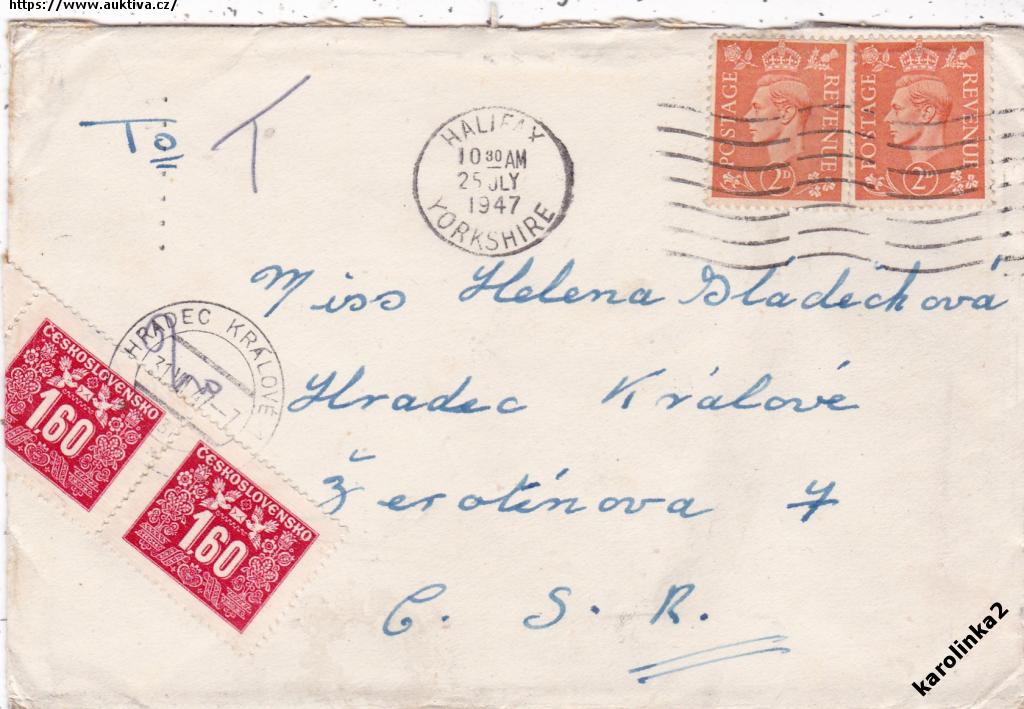 https://www.auktiva.cz/
To
T
HALIFAX
10 30 AM
25 JLY
1947
YORKSHIRE
POSTAGE REVENUE
2D
POSTAGE REVENUE
2D
Miss Helena Sládečková
HRADEC KRÁLOVÉ
ČESKOSLOVENSKO
1.60
Hradec Králové
ČESKOSLOVENSKO
1.60
Žerotínova 7
Č. S. R.
karolinka2